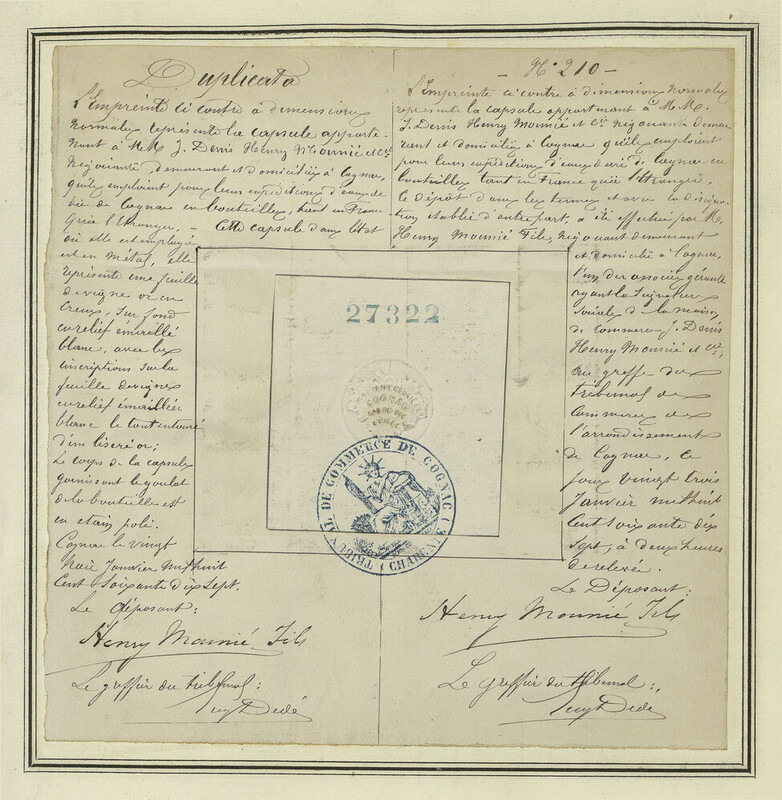 Duplicata
L'Empreinte ci contre à dimensions
normales représente la capsule apparte-
nant à M M. J. Denis Henry Mounié et Cie
Négociants, demeurant et domiciliés à Cognac,
qu'ils emploient pour leurs expéditions d'eaux de
vie de Cognac en bouteilles, tant en France
qu'à l'Etranger. — Cette capsule d'aux
où elle est employée
est en métal, elle
représente une feuille
de vigne or en
creux, sur fond
en relief émaillé
blanc, avec les
inscriptions sur la
feuille de vigne
en relief émaillée
blanc le tout entouré
d'un liseré or;
Le corps de la capsule
garnissant le goulot
de la bouteille est
en étain poli.
Cognac le vingt
trois Janvier mil huit
Cent Soixante dix Sept.
Le déposant:
Henry Mounié Fils
Le greffier du tribunal:
- N° 210 -
L'Empreinte ci contre à dimensions normales
représente la capsule appartenant à M M.
J. Denis Henry Mounié et Cie Négociants demeu-
rant et domiciliés à Cognac qu'ils emploient
pour leurs expéditions d'eaux de vie de Cognac en
bouteilles tant en France qu'à l'Etranger,
le dépôt d'aux termes et avec la
établie d'autre part, a été effectué par M.
Henry Mounié Fils, négociant demeurant
et domicilié à Cognac,
l'un des associés gérants
ayant la Signature
sociale de la maison
de commerce J. Denis
Henry Mounié et Cie,
au greffe du
tribunal de
Commerce de
l'arrondissement
de Cognac, ce
jour vingt trois
Janvier mil huit
Cent soixante dix
sept, à deux heures
de relevée.
Le Déposant:
Henry Mounié Fils
Le greffier du tribunal:
27322
COGNAC
TRIBUNAL DE COMMERCE DE COGNAC (CHARENTE)